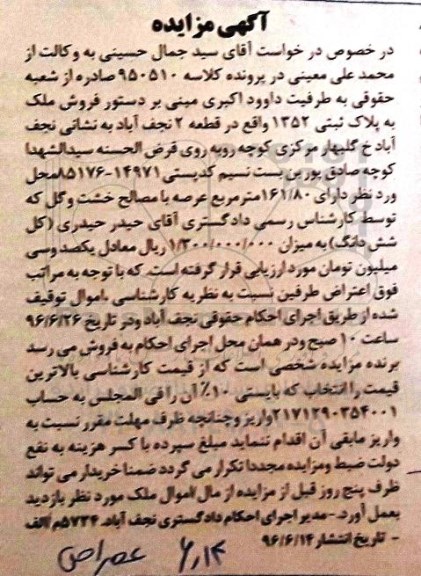 آگهی مزایده
در خصوص در خواست آقای سید جمال حسینی به وکالت از
محمد علی معینی در پرونده کلاسه ۹۵۰۵۱۰ صادره از شعبه
حقوقی به طرفیت داوود اکبری مبنی بر دستور فروش ملک
به پلاک ثبتی ۱۳۵۲ واقع در قطعه ۲ نجف آباد به نشانی نجف
آباد خ گلبهار مرکزی کوچه روبه روی قرض الحسنه سیدالشهدا
کوچه صادق پور بن بست نسیم کدپستی ۱۴۹۷۱-۸۵۱۷۶محل
ورد نظر دارای ۱۶۱/۸۰متر مربع عرصه با مصالح خشت و گل که
توسط کارشناس رسمی دادگستری آقای حیدر حیدری (کل
شش دانگ) به میزان ۱/۳۰۰/۰۰۰/۰۰۰ ریال معادل یکصد وسی
میلیون تومان مورد ارزیابی قرار گرفته است. که با توجه به مراتب
فوق اعتراض طرفین نسبت به نظریه کارشناسی ،اموال توقیف
شده از طریق اجرای احکام حقوقی نجف آباد ودر تاریخ ۹۶/۶/۲۶
ساعت ۱۰ صبح ودر همان محل اجرای احکام به فروش می رسد
برنده مزایده شخصی است که از قیمت کارشناسی بالاترین
قیمت را انتخاب که بایستی ۱۰٪ آن را فی المجلس به حساب
۲۱۷۱۲۹۰۳۵۴۰۰۱واریز وچنانچه ظرف مهلت مقرر نسبت به
واریز مابقی آن اقدام ننماید مبلغ سپرده با کسر هزینه به نفع
دولت ضبط ومزایده مجددا تکرار می گردد ضمنا خریدار می تواند
ظرف پنج روز قبل از مزایده از مال/اموال ملک مورد نظر بازدید
بعمل آورد.-مدیر اجرای احکام دادگستری نجف آباد. ۵۷۳۴م/الف
- تاریخ انتشار ۹۶/۶/۱۴
۶٫۱۴